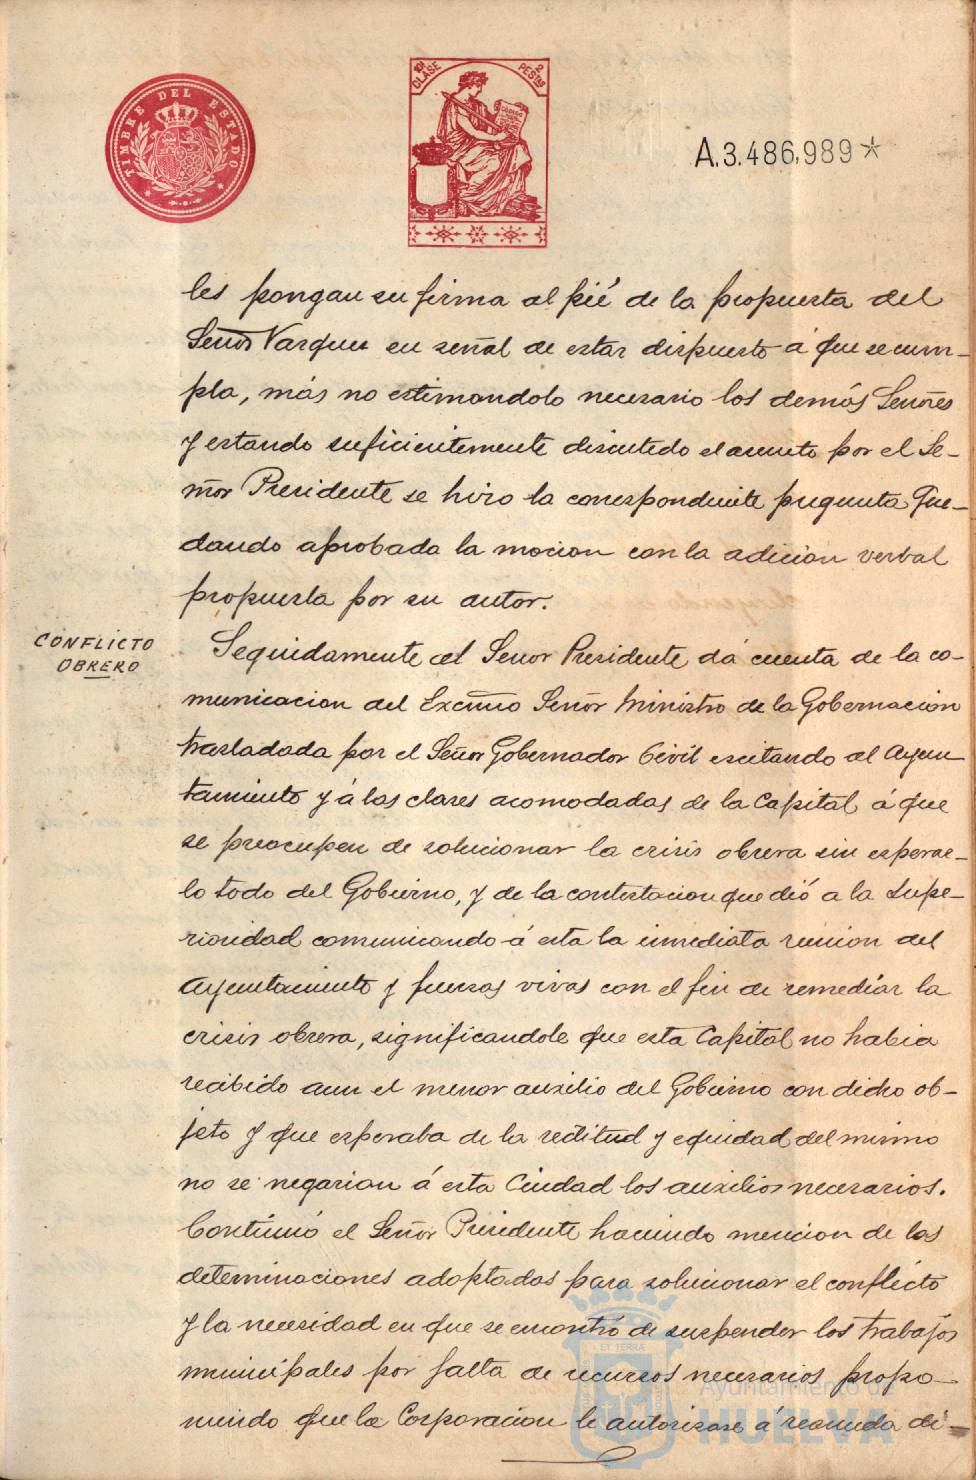 TIMBRE DEL ESTADO
10ª CLASE
2 PESTAS
A.3.486,989*
les pongan su firma al pié de la propuesta del
Señor Vazquez en señal de estar dispuesto á que se cum-
pla, más no estimandolo necesario los demás Señores
y estando suficientemente discutido el asunto por el Se-
ñor Presidente se hizo la correspondiente pregunta que-
dando aprobada la mocion con la adicion verbal
propuesta por su autor.
CONFLICTO
OBRERO
Seguidamente el Señor Presidente dá cuenta de la co-
municacion del Excmo Señor Ministro de la Gobernacion
trasladada por el Señor Gobernador Civil escitando al Ayun
tamiento y á las clases acomodadas de la Capital á que
se preocupen de solucionar la crisis obrera sin esperar-
lo todo del Gobierno, y de la contestacion que dió a la Supe-
rioridad comunicando á esta la inmediata reunion del
Ayuntamiento y fuerzas vivas con el fin de remediar la
crisis obrera, significandole que esta Capital no habia
recibido aun el menor auxilio del Gobierno con dicho ob-
jeto y que esperaba de la rectitud y equidad del mismo
no se negarian á esta Ciudad los auxilios necesarios.
Continuó el Señor Presidente haciendo mencion de las
determinaciones adoptadas para solucionar el conflicto
y la necesidad en que se encontró de suspender los trabajos
municipales por falta de recursos necesarios propo-
niendo que la Corporacion le autorizase á reanudar di-
ET TERRA
Ayuntamiento de
HUELVA